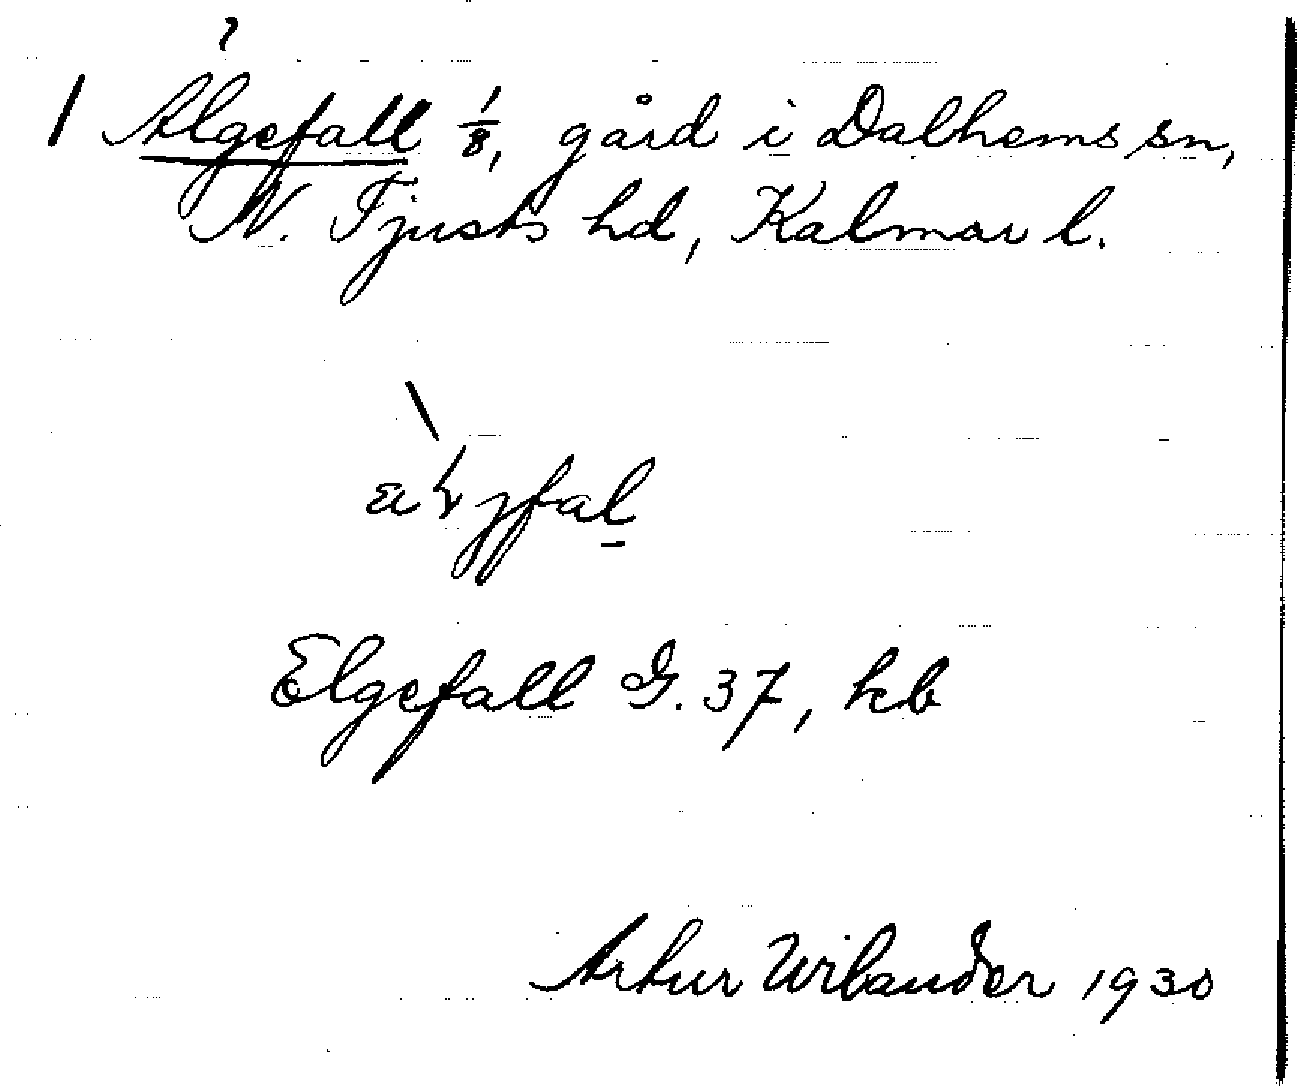 Algefall 1/8, gård i Dalhems sn,
N. Tjusts hd, Kalmar l.
Elgefall G. 37, kb
Artur Wilander 1930